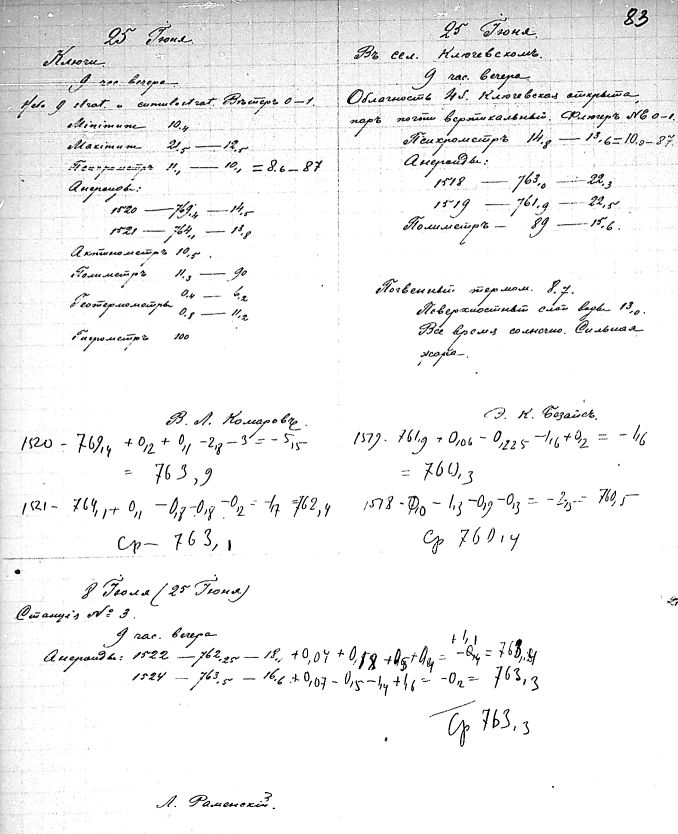 83
25 Іюня
Ключи.
9 час вечера
strat. и cumulostrat Вѣтеръ 0-1.
Minimum 10,4
Maximum 21,5 — 12,5
Психрометръ 11,1 — 10,1 = 8.6 - 87
Анероиды:
1520 — 769,4 — 14,5
1521 — 764,1 — 13,8
Актинометръ 10,5.
Полиметръ 11,3 — 90
Геотермометры 0,4 — 6,2
0,8 — 11,2
Гигрометръ 100
В. Л. Комаровъ.
1520 - 769,4 + 0,2 + 0,1 - 2,8 - 3 = - 5,5
= 763,9
1521 - 764,1 + 0,1 - 0,8 - 0,8 - 0,2 = - 1,7 = 762,4
Ср - 763,1
25 Іюня.
Въ сел. Ключевскомъ.
9 час. вечера
Облачность 4 s. Ключевская открыта,
паръ почти вертикальный. Флюгеръ NE 0-1.
Психрометръ 14,8 — 13,6 = 10,0 - 87.
Анероиды:
1518 — 763,0 — 22,3
1519 — 761,9 — 22,5
Полиметръ — 89 — 15,6.
Почвенный термом. 8,7.
Поверхностный слой воды 13,0.
Все время солнечно. Сильная
жара.
Э. К. Безаисъ.
1519 - 761,9 + 0,06 - 0,225 - 1,6 + 0,2 = - 1,6
= 760,3
1518 - - 1,3 - 0,9 - 0,3 = - 2,5 = 760,5
Ср 760,4
8 Іюля (25 Іюня)
Станція № 3.
9 час. вечера
Анероиды: 1522 — 762,25 — 18,1 + 0,04 +
1524 — 763,5 — 16,6 + 0,07 - 0,5 - 1,4 + 1,6 = - 0,2 = 763,3
Ср 763,3
Л. Раменскій.